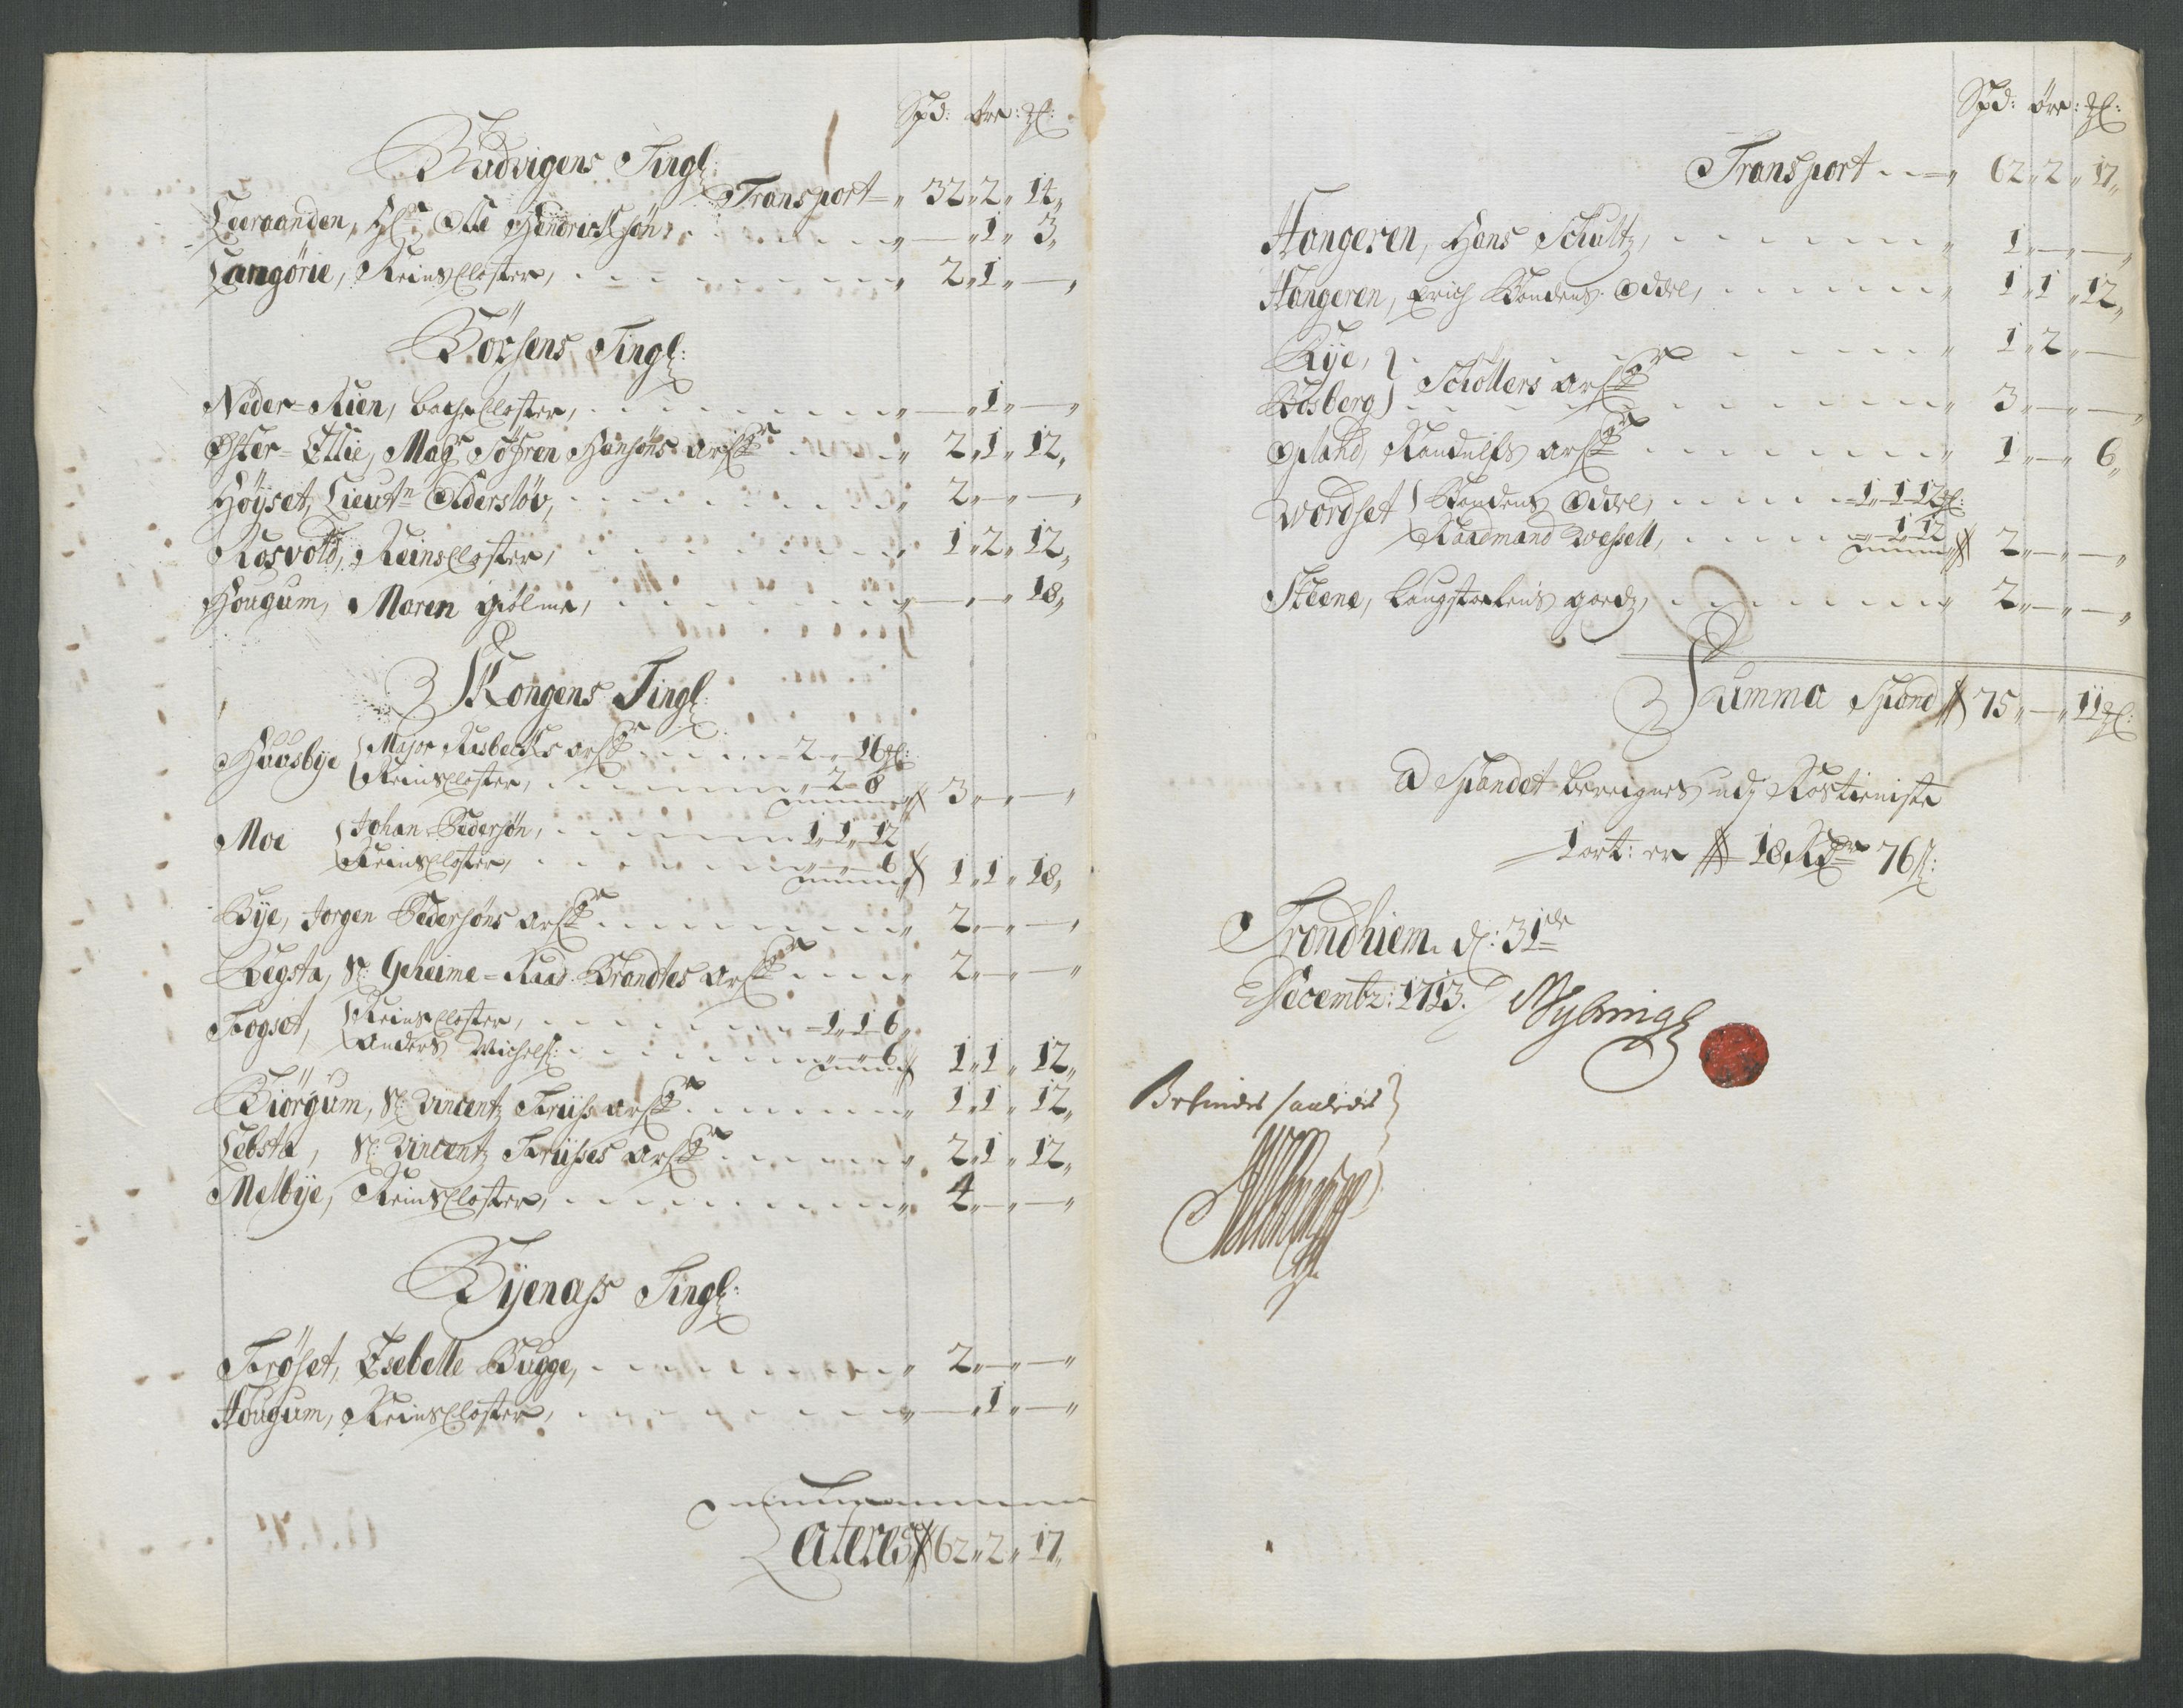 Spd: öre: ₰:
Budvigens Tingl:
Transport 32 2 14
Leeraanden, Hr Olle Hendrichsøn, — 1 3
Langörie, Reinscloster, 2 1 —
Börsens Tingl:
Neder-Rien, Bachecloster, — 1 —
Øster-Ellie, Magr Söfren Hansöns arf: 2 1 12
Höyset, Lieutn Olderslöv, 2 — —
Rosvold, Reinscloster, 1 2 12
Hougum, Maren Giølme, — — 18
Skongens Tingl:
Huusbye Major Risbechs arf: 2 — 16
Reinscloster, 2 8
3 — —
Moe Johan Pedersøn, 1 1 12
Reinscloster, 6
1 1 18
Bye, Jorgen Pedersöns arf: 2 — —
Regsta, Sl: Geheime-Raad Brandtes arf: 2 — —
Fogset, Reinscloster, 1 1 6
Anders Michels: 6
1 1 12
Biörgum, Sl: Vincentz Friiss arf: 1 1 12
Lebsta, Sl: Vincentz Friisses arf: 2 1 12
Melbye, Reinscloster, 4 — —
Byenass Tingl:
Frøset, Esebelle Bugge, 2 — —
Hougum, Reinscloster, — 1 —
Lateres 62 2 17
Spd: öre: ₰:
Transport 62 2 17
Hangeren, Hans Schultz, 1 — —
Hangeren, Erich Bondens Oddel, 1 1 12
Rye, 1 2 —
Schöllers arf:
Bosberg 3 — —
Opland, Randulfs arf: 1 — 6
Wordset Bondens Oddel, 1 1 12
Raadmand Wessell, 1 12
2 — —
Steene, Laugstoelens goedz, 2 — —
Summa Spand 75 — 11
a Spandet bereignes udj Rostieniste
1 ort: er 18 Rdr 76 s:
Trondhiem d: 31de
Decembr: 1713.
Befindes saaledes